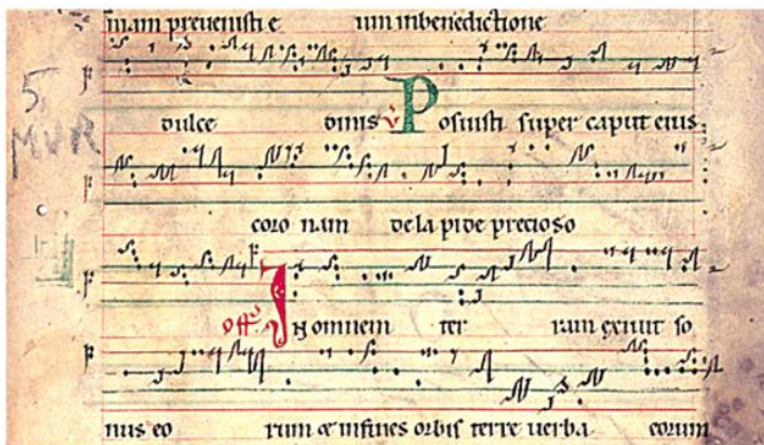 mam prevenisti e um in benedictione
dulce dinis v Posuisti super caput eius
5
MVR
coro nam de lapide precioso
off In omnem ter ram exivit so
nus eo rum et in fines orbis terre verba eorum